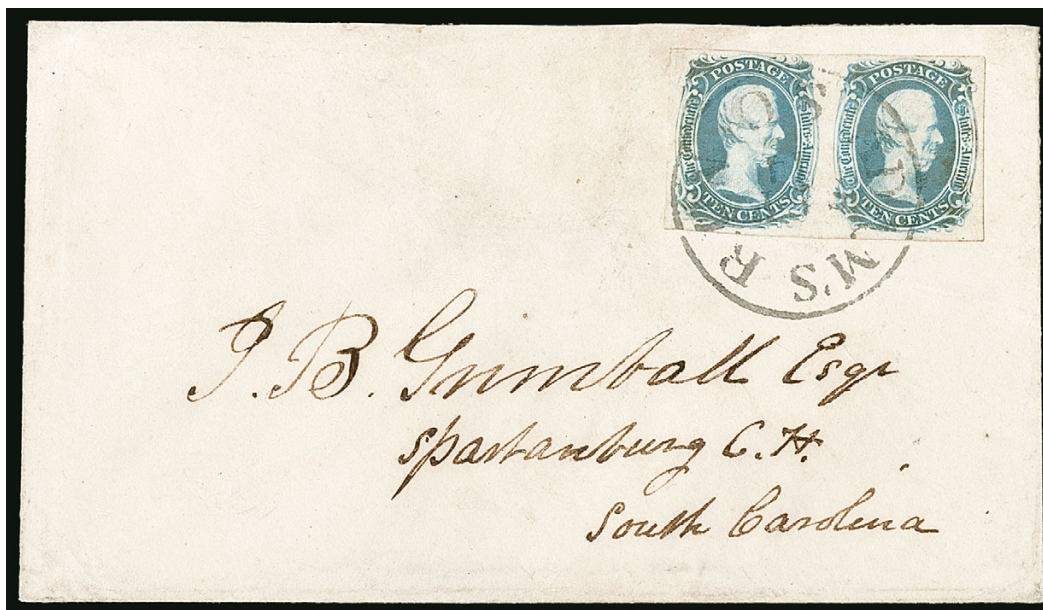 POSTAGE
The Confederate States of America
TEN CENTS
POSTAGE
The Confederate States of America
TEN CENTS
M'S R
J. B. Grimball Esqr
Spartanburg C. H.
South Carolina